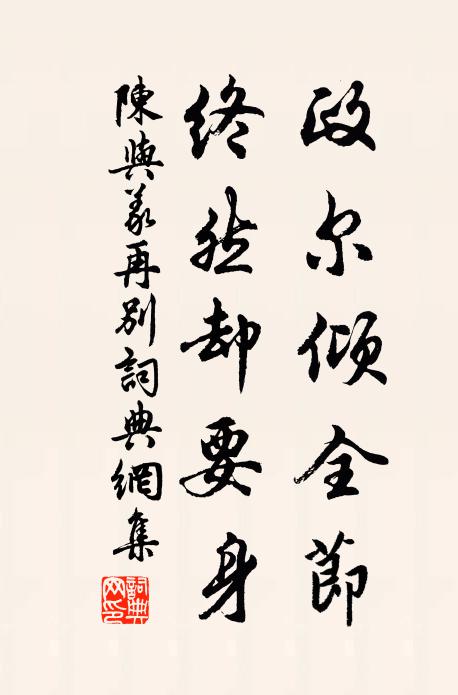 政尔倾全節
终然却要身
陳與義再别詞典網集
詞典網印